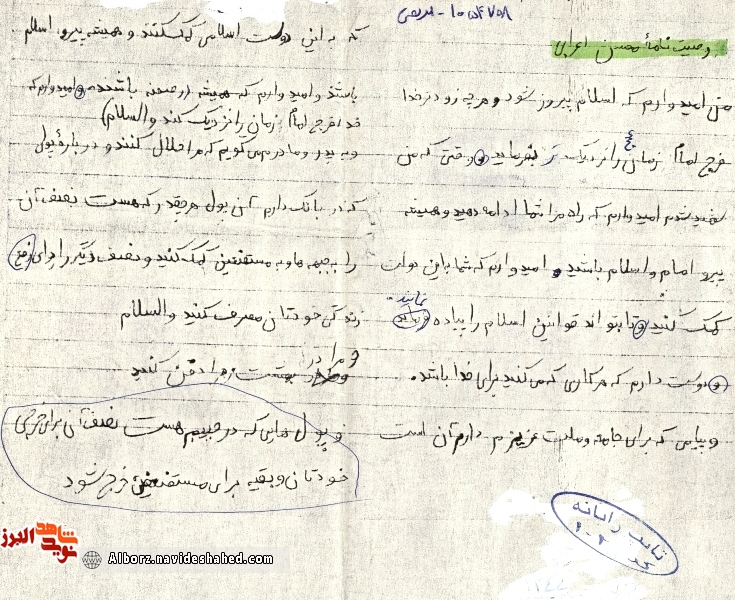 ۱۰۵۴۷۵۸ - مرخصی
وصیت نامهٔ محسن اعرابی
من امیدوارم که اسلام پیروز شود و هرچه زودتر خدا
فرج امام زمان (عج) را نزدیک تر بفرماید و وقتی که من
شهید شدم امیدوارم که راه مرا شما ادامه دهید و همیشه
پیرو امام و اسلام باشید و امیدوارم که شما به این دولت
کمک کنید و تا بتواند قوانین اسلام را پیاده نمایند.
و دوست دارم که هر کاری که می کنید برای خدا باشد.
و پیامی که برای جامعه و ملت عزیزم دارم آن است
که به این دولت اسلامی کمک کنند و همیشه پیرو اسلام
باشند و امیدوارم که همیشه در صحنه باشند و امیدوارم که
خدا فرج امام زمان را نزدیک کند والسلام)
و به پدر و مادرم می گویم که مرا حلال کنند و دربارهٔ پول
که در بانک دارم آن پول هرچقدر که هست نصف آن
را به جبهه ها و به مستضعفین کمک کنید و نصف دیگر را برای
زندگی خودتان مصرف کنید والسلام
و مرا در بهشت زهرا دفن کنید
و پول هایی که در جیبم هست نصف آن برای خرجی
خودتان و بقیه برای مستضعفین خرج شود
تایپ رایانه
شاهد
نوید البرز
Alborz.navideshahed.com